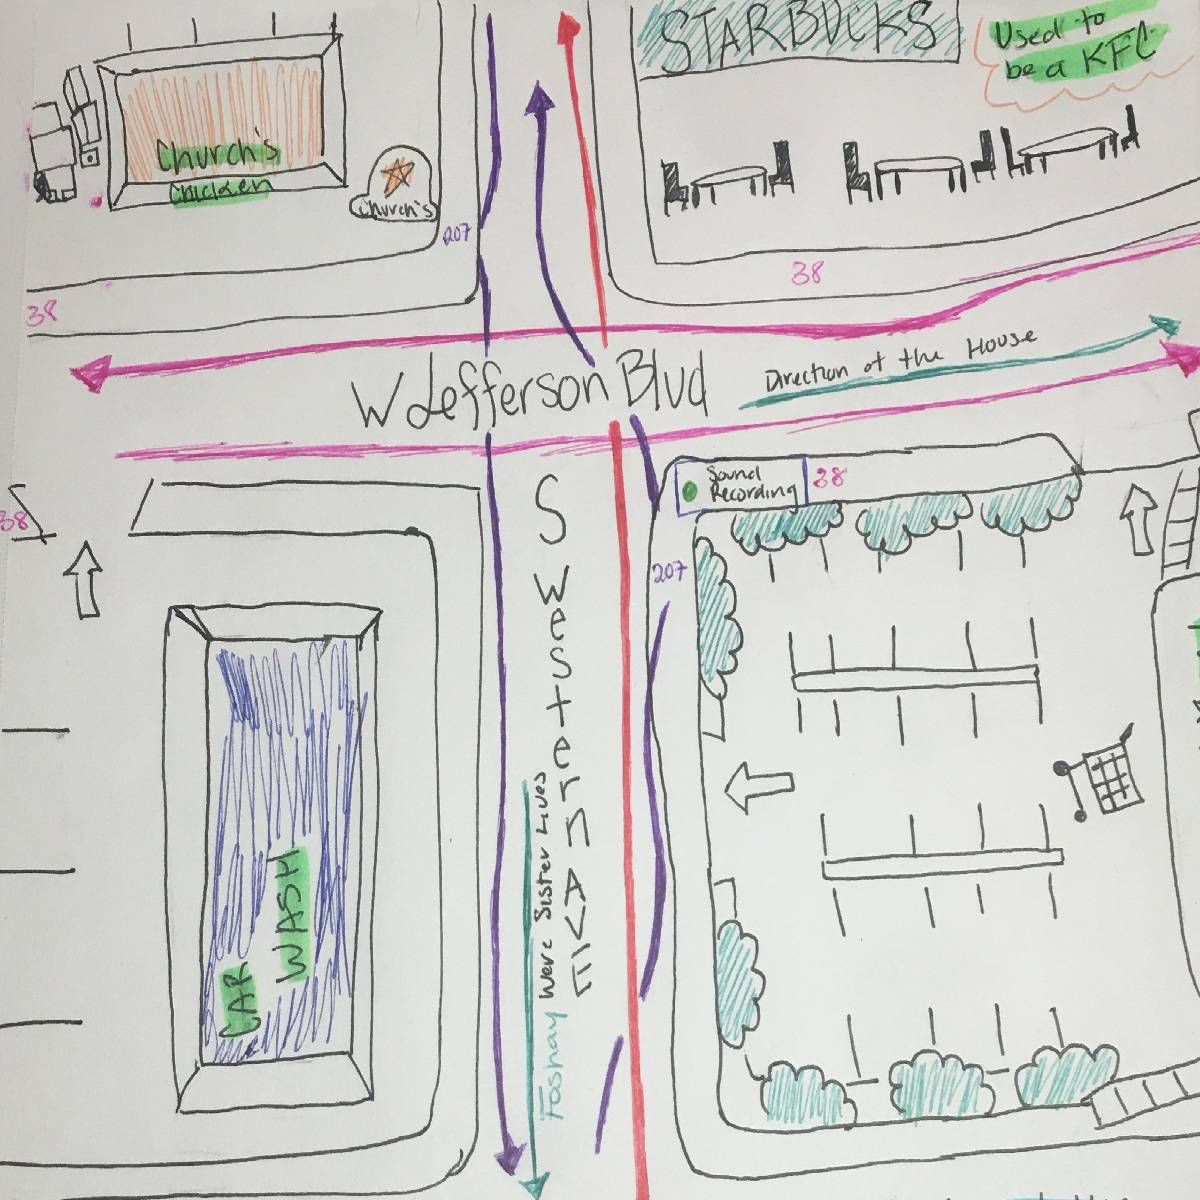 STARBUCKS
Used to
be a KFC
Church's
Chicken
Church's
207
38
38
W Jefferson Blvd
Direction of the House
38
Sound
Recording
38
207
S Western AVE
Foshay Were Sister Lives
CAR
WASH